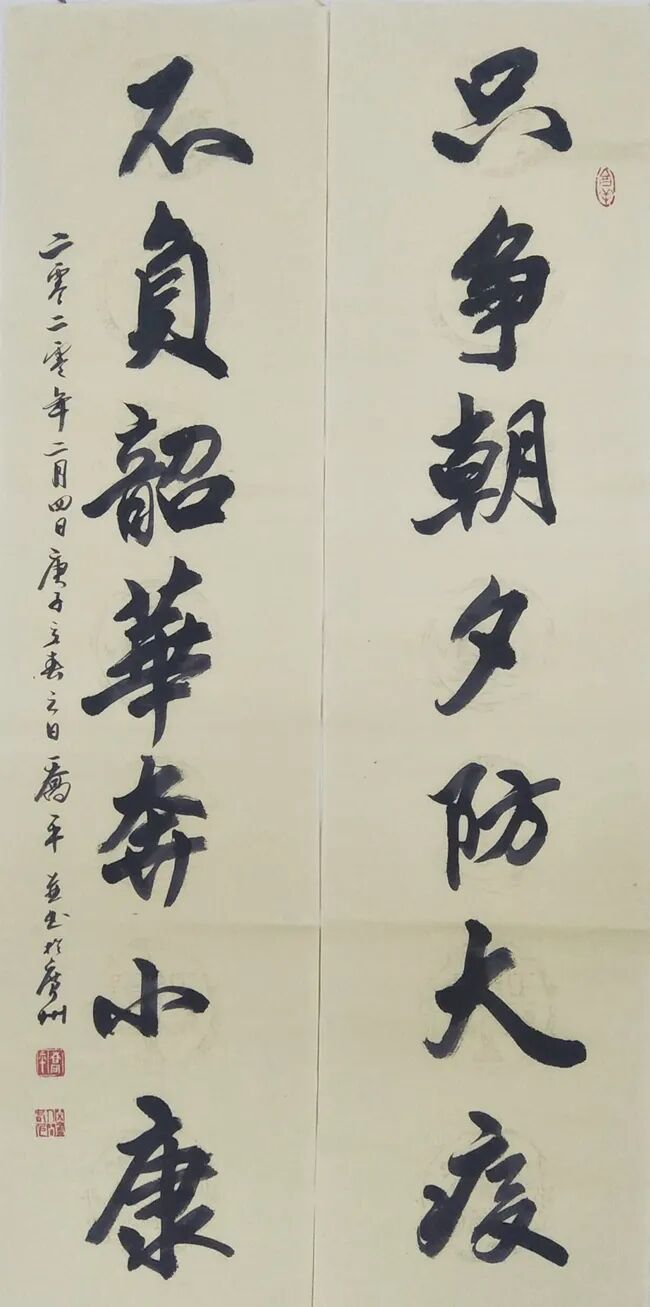 只争朝夕防大疫
不負韶華奔小康
二零二零年二月四日庚子立春之日喬平並书於廣州